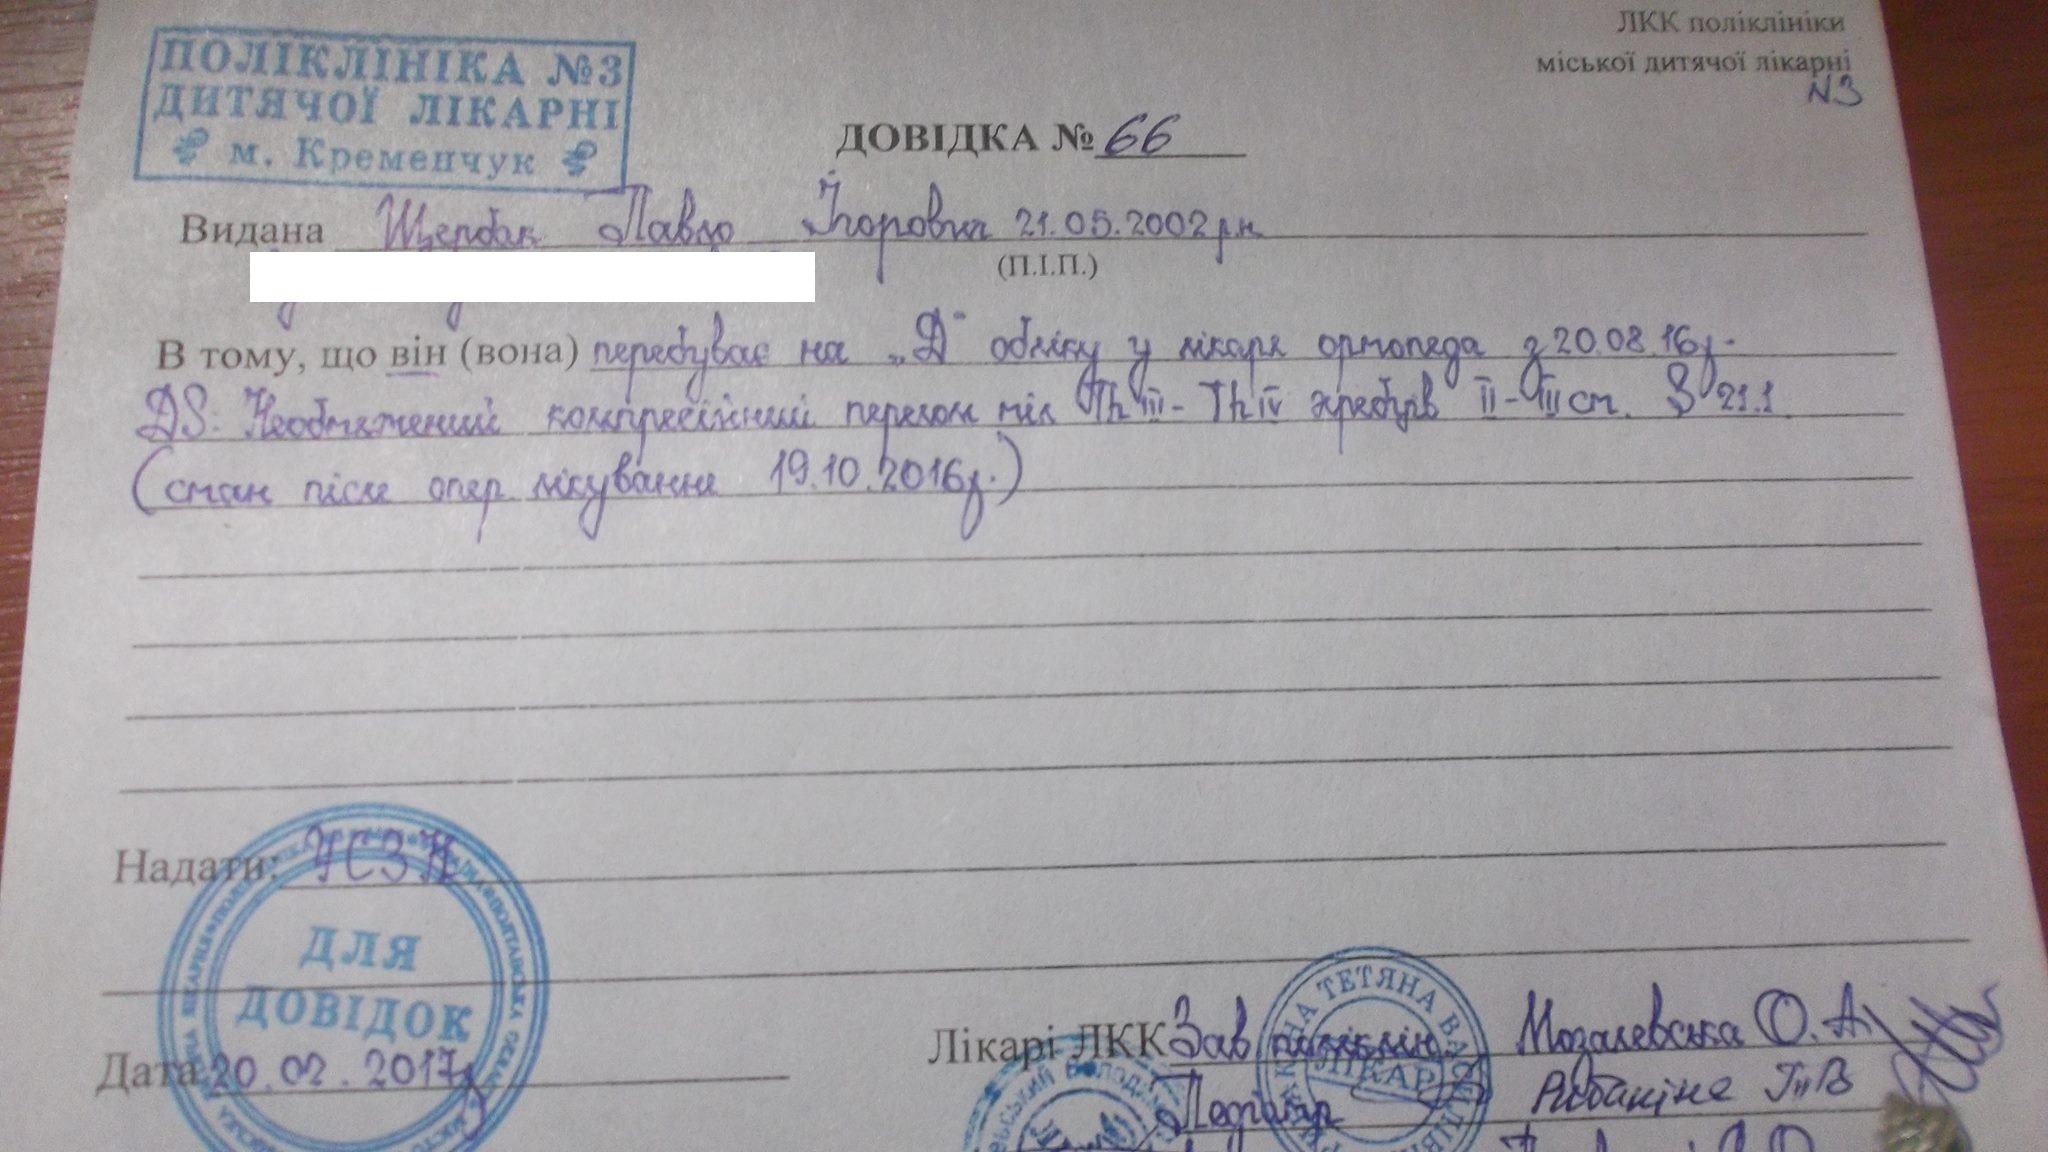 ПОЛІКЛІНІКА №3
ДИТЯЧОЇ ЛІКАРНІ
м. Кременчук
ЛКК поліклініки
міської дитячої лікарні
N3
ДОВІДКА № 66
Видана Щербак Павло Ігорович 21.05.2002 р.н.
(П.І.П.)
В тому, що він (вона) перебуває на „Д" обліку у лікаря ортопеда з 20.08.16р.
DS: Необтяжений компресійний перелом тіл Th III - Th IV хребців II - III ст. S 21.1
(стан після опер лікування 19.10.2016р.)
Надати: УСЗН
ДЛЯ
ДОВІДОК
Дата 20.02.2017р
Лікарі ЛКК Зав поліклін. Мозалевська О.А
ТЕТЯНА
ЛІКАР
Педіатр